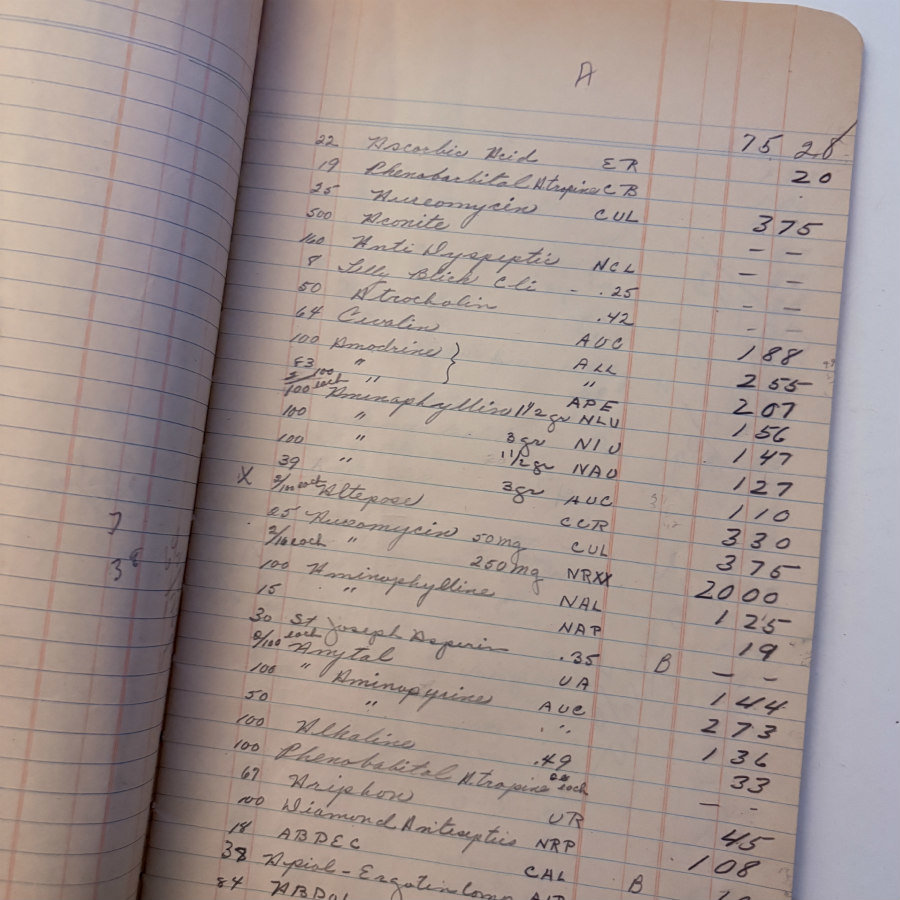 A
22 Ascorbic Acid ER 75 28
19 Phenobarbital Atropine CB 20
25 Aureomycin CUL 375
500 Aconite - -
160 Anti Dyspeptic NCL -  -
8 Lilly Blick Cli - .25 - -
50 Atrocholin .42 - -
64 Cevalin AUC 188
100 Amodrine } ALL 255
83 " } " 207
2/100 each " APE 156
100 Aminophylline 1 1/2 gr NLU 147
100 " 3 gr NIU 127
100 " 1 1/2 gr NAU 110
39 " 3 gr AUC
X 2/100 each Altepose CCR 330
25 Aureomycin 50 mg CUL 375
2/16 each " 250 mg NRXX 2000
100 Aminophylline NAL 125
15 " NAP 19
30 St Joseph Aspirin .35 B - -
2/100 each Amytal UA 144
100 " Aminopyrine AUC 273
50 " " 136
100 Alkaline .49 33
100 Phenobabital Atropine each - -
67 Ariphon UR 45
100 Diamond Antiseptics NRP 108
18 ABDEC CAL B
38 Apiol - Ergotin Comp
84
7
38